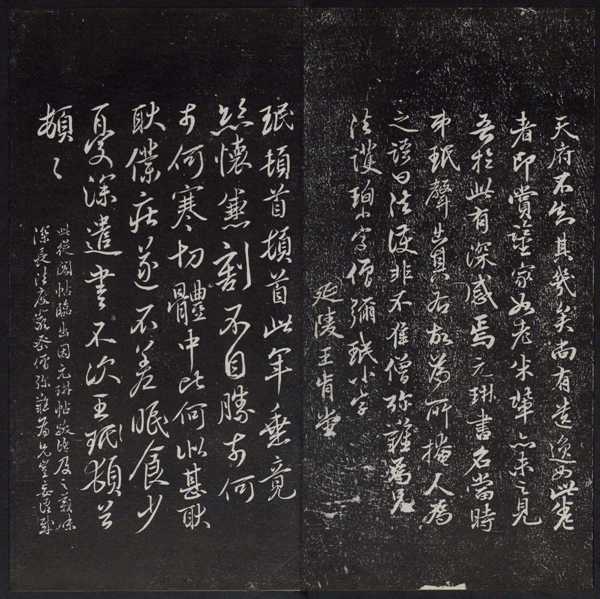 天府不知其幾矣尚有遺逸如此卷
者即賞鑒家如老米輩亦未之見
吾於此有深感焉元琳書名當時
弟珉聲出其右故為所掩人為
之語曰法護非不佳僧彌難為兄
法護珣小字僧彌珉小字
延陵王肯堂
珉頓首頓首此年垂竟
悲懷兼割不自勝奈何
奈何寒切體中比何似甚耿
耿僕疾遂不差眠食少
憂深遣書不次王珉頓首
頓首
此從閣帖臨出因元琳帖
深是法度家恭僧弥難為兄